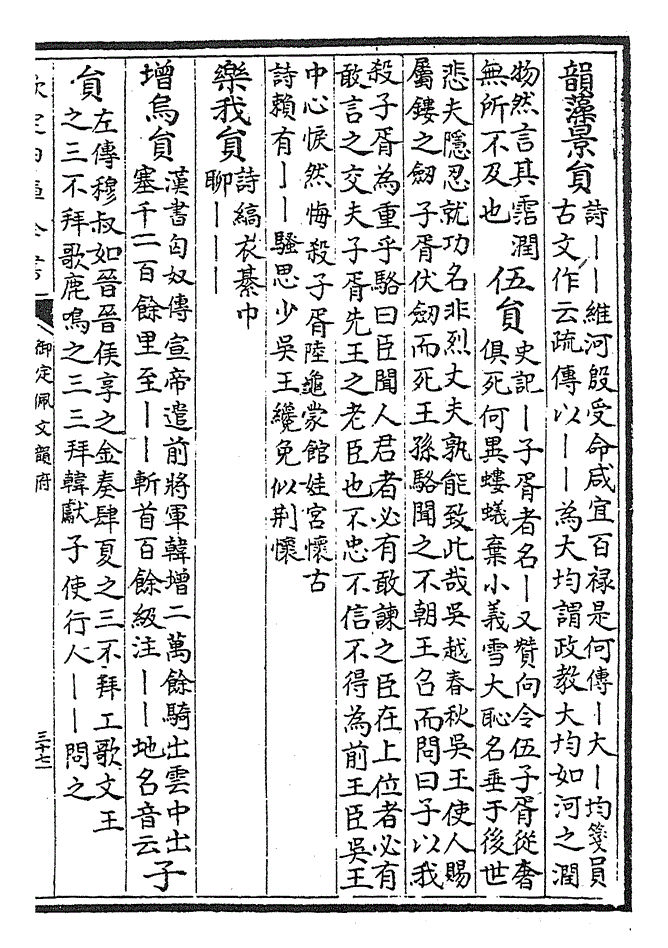 韻藻景貟詩丨丨維河殷受命咸宜百禄是何傳丨大丨均箋員
古文作云疏傳以丨丨為大均謂政教大均如河之潤
物然言其霑潤
無所不及也伍貟史記丨子胥者名丨又贊向令伍子胥從奢
俱死何異螻蟻棄小義雪大恥名垂于後世
悲夫隱忍就功名非烈丈夫孰能致此哉吳越春秋吳王使人賜
屬鏤之劒子胥伏劒而死王孫駱聞之不朝王召而問曰子以我
殺子胥為重乎駱曰臣聞人君者必有敢諫之臣在上位者必有
敢言之交夫子胥先王之老臣也不忠不信不得為前王臣吳王
中心悷然悔殺子胥陸龜蒙館娃宮懷古
詩賴有丨丨騷思少吳王纔免似荆懷
樂我貟詩縞衣綦巾
聊丨丨丨
增烏貟漢書匈奴傳宣帝遣前將軍韓增二萬餘騎出雲中出
塞千二百餘里至丨丨斬首百餘級注丨丨地名音云子
貟左傳穆叔如晉晉侯享之金奏肆夏之三不拜工歌文王
之三不拜歌鹿鳴之三三拜韓獻子使行人丨丨問之
御定佩文韻府
三十七